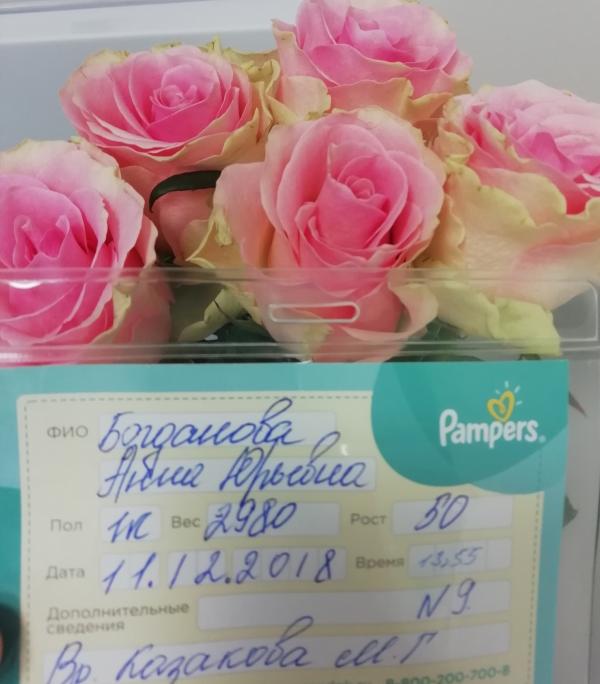 Pampers
ФИО Богданова
Анна Юрьевна
Пол ж Вес 2980 Рост 50
Дата 11.12.2018 Время 13,55
Дополнительные
сведения N 9
Вр. Казакова М. Г
8-800-200-700-8